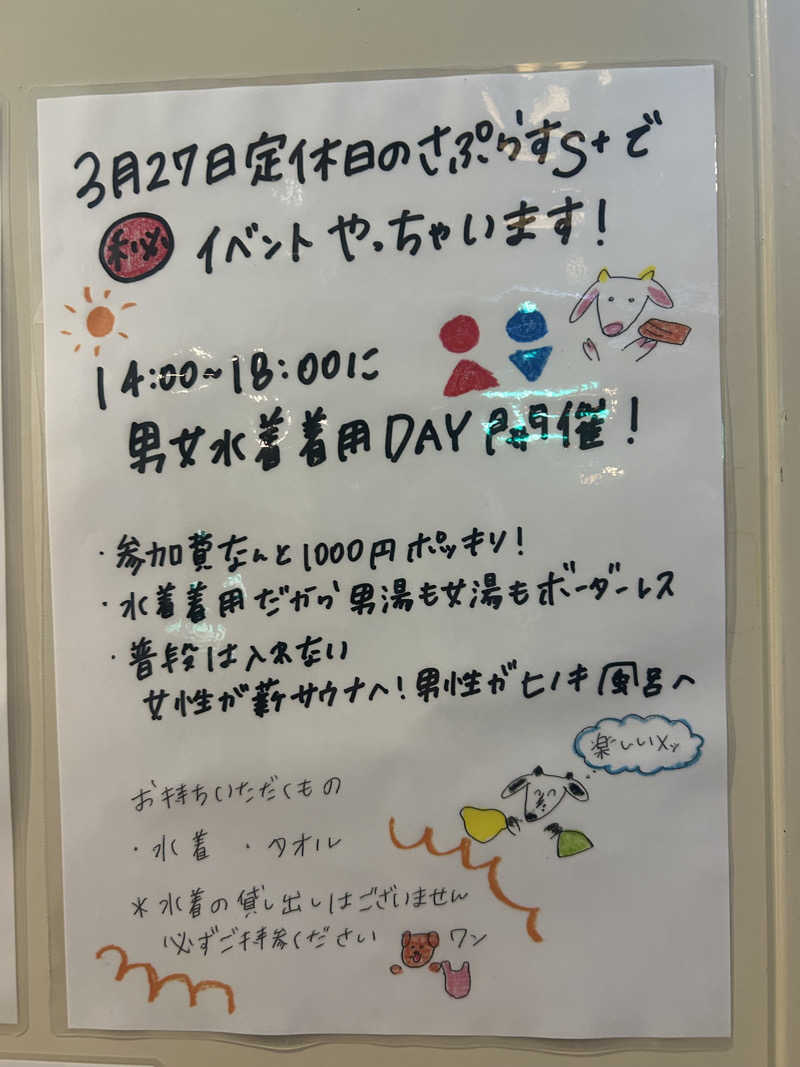 3月27日定休日のさぷらすS+で
㊙ イベントやっちゃいます!
14:00~18:00に
男女水着着用DAY開催!
・参加費なんと1000円ポッキリ!
・水着着用だから男湯も女湯もボーダーレス
・普段は入れない
女性が薪サウナへ!男性がヒノキ風呂へ
楽しいメェ
お持ちいただくもの
・水着 ・タオル
*水着の貸し出しはございません
必ずご持参ください
ワン